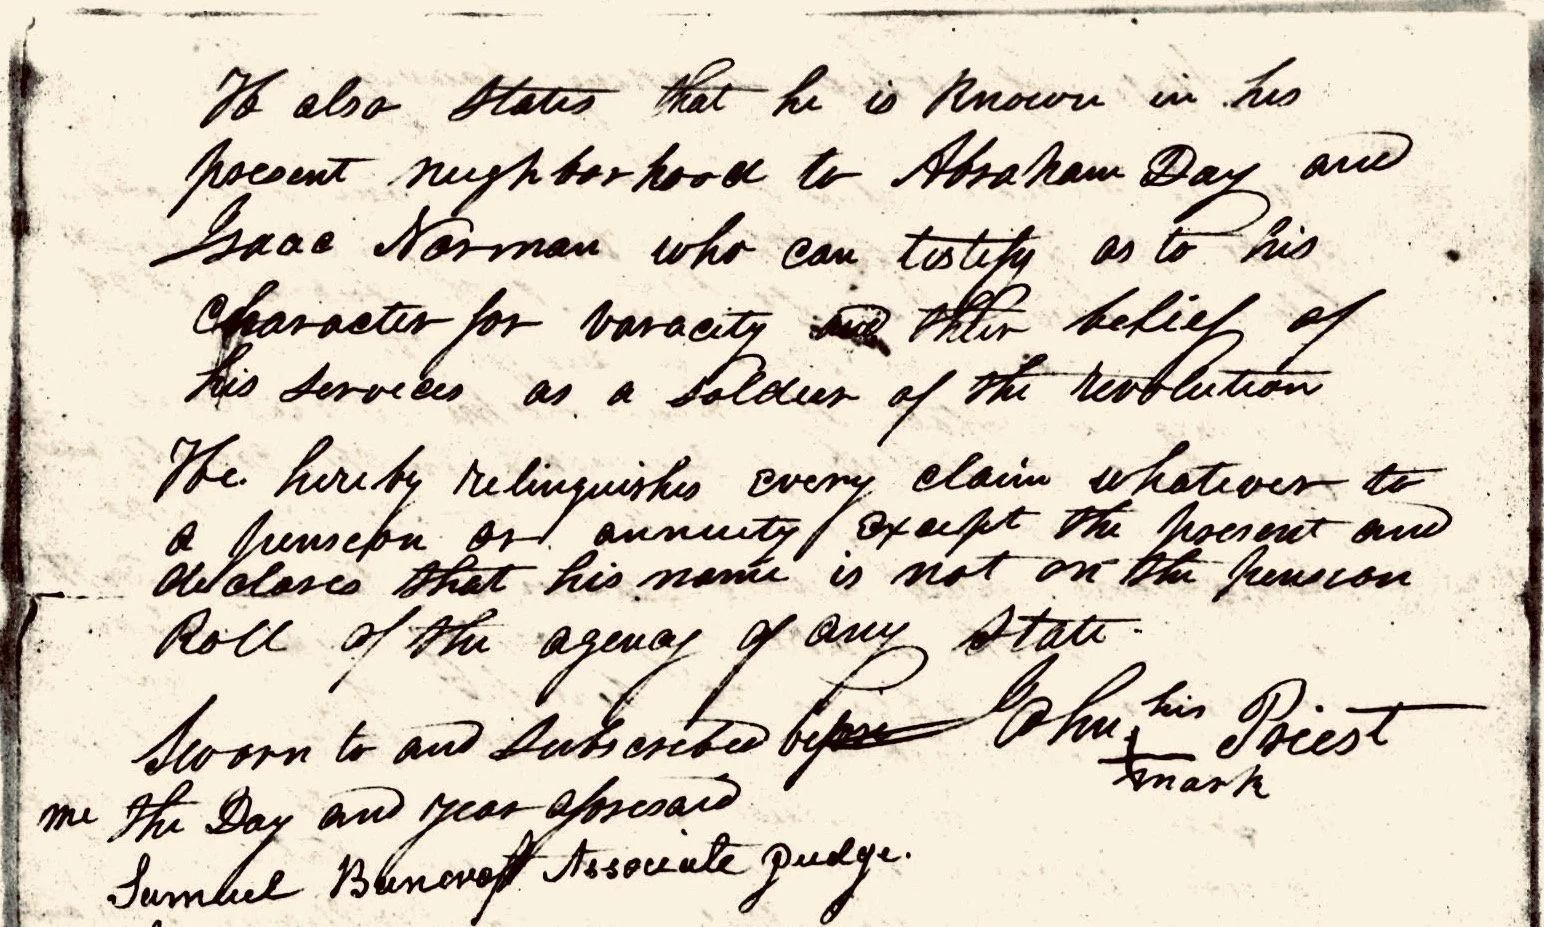 He also states that he is Known in his
present neighborhood to Abraham Day and
Isaac Norman who can testify as to his
character for varacity and their belief of
his services as a soldier of the revolution
He hereby relinquishes every claim whatever to
a pension or annuity except the present and
declares that his name is not on the pension
Roll of the agency of any State.
Sworn to and subscribed before John his Priest
mark
me the Day and year aforesaid
Samuel Bancroft Associate Judge.